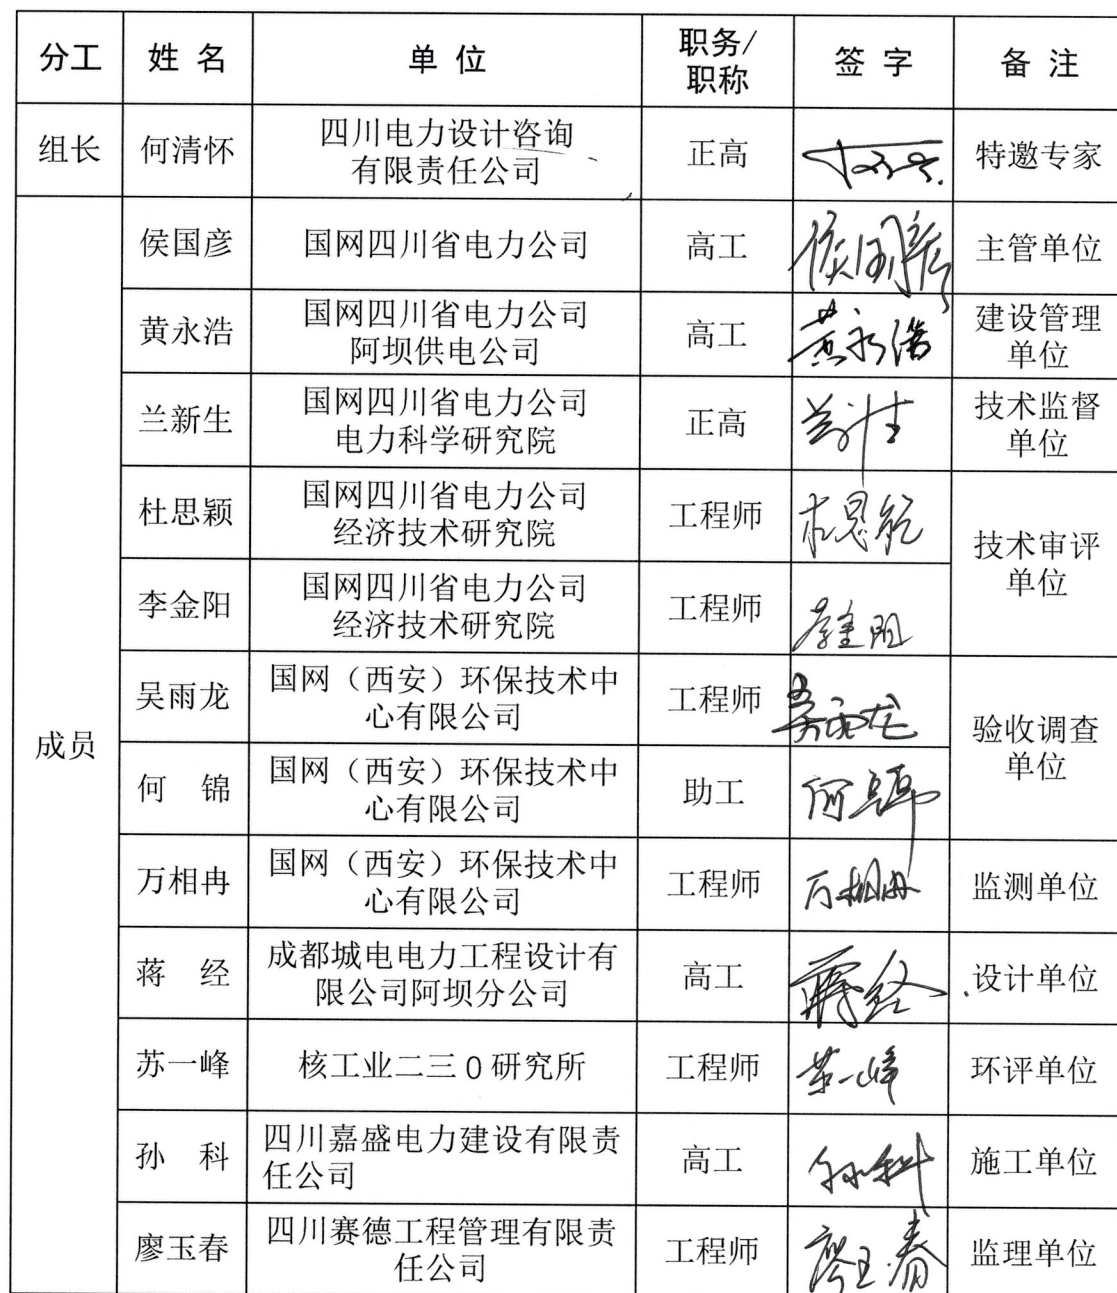 分工 姓 名 单 位 职务/职称 签 字 备 注
组长 何清怀 四川电力设计咨询有限责任公司 正高 特邀专家
成员
侯国彦 国网四川省电力公司 高工 侯国彦 主管单位
黄永浩 国网四川省电力公司阿坝供电公司 高工 黄永浩 建设管理单位
兰新生 国网四川省电力公司电力科学研究院 正高 技术监督单位
杜思颖 国网四川省电力公司经济技术研究院 工程师 技术审评单位
李金阳 国网四川省电力公司经济技术研究院 工程师 李金阳
吴雨龙 国网（西安）环保技术中心有限公司 工程师 吴雨龙 验收调查单位
何 锦 国网（西安）环保技术中心有限公司 助工 何锦
万相冉 国网（西安）环保技术中心有限公司 工程师 万相冉 监测单位
蒋 经 成都城电电力工程设计有限公司阿坝分公司 高工 蒋经 设计单位
苏一峰 核工业二三0研究所 工程师 苏一峰 环评单位
孙 科 四川嘉盛电力建设有限责任公司 高工 孙科 施工单位
廖玉春 四川赛德工程管理有限责任公司 工程师 廖玉春 监理单位